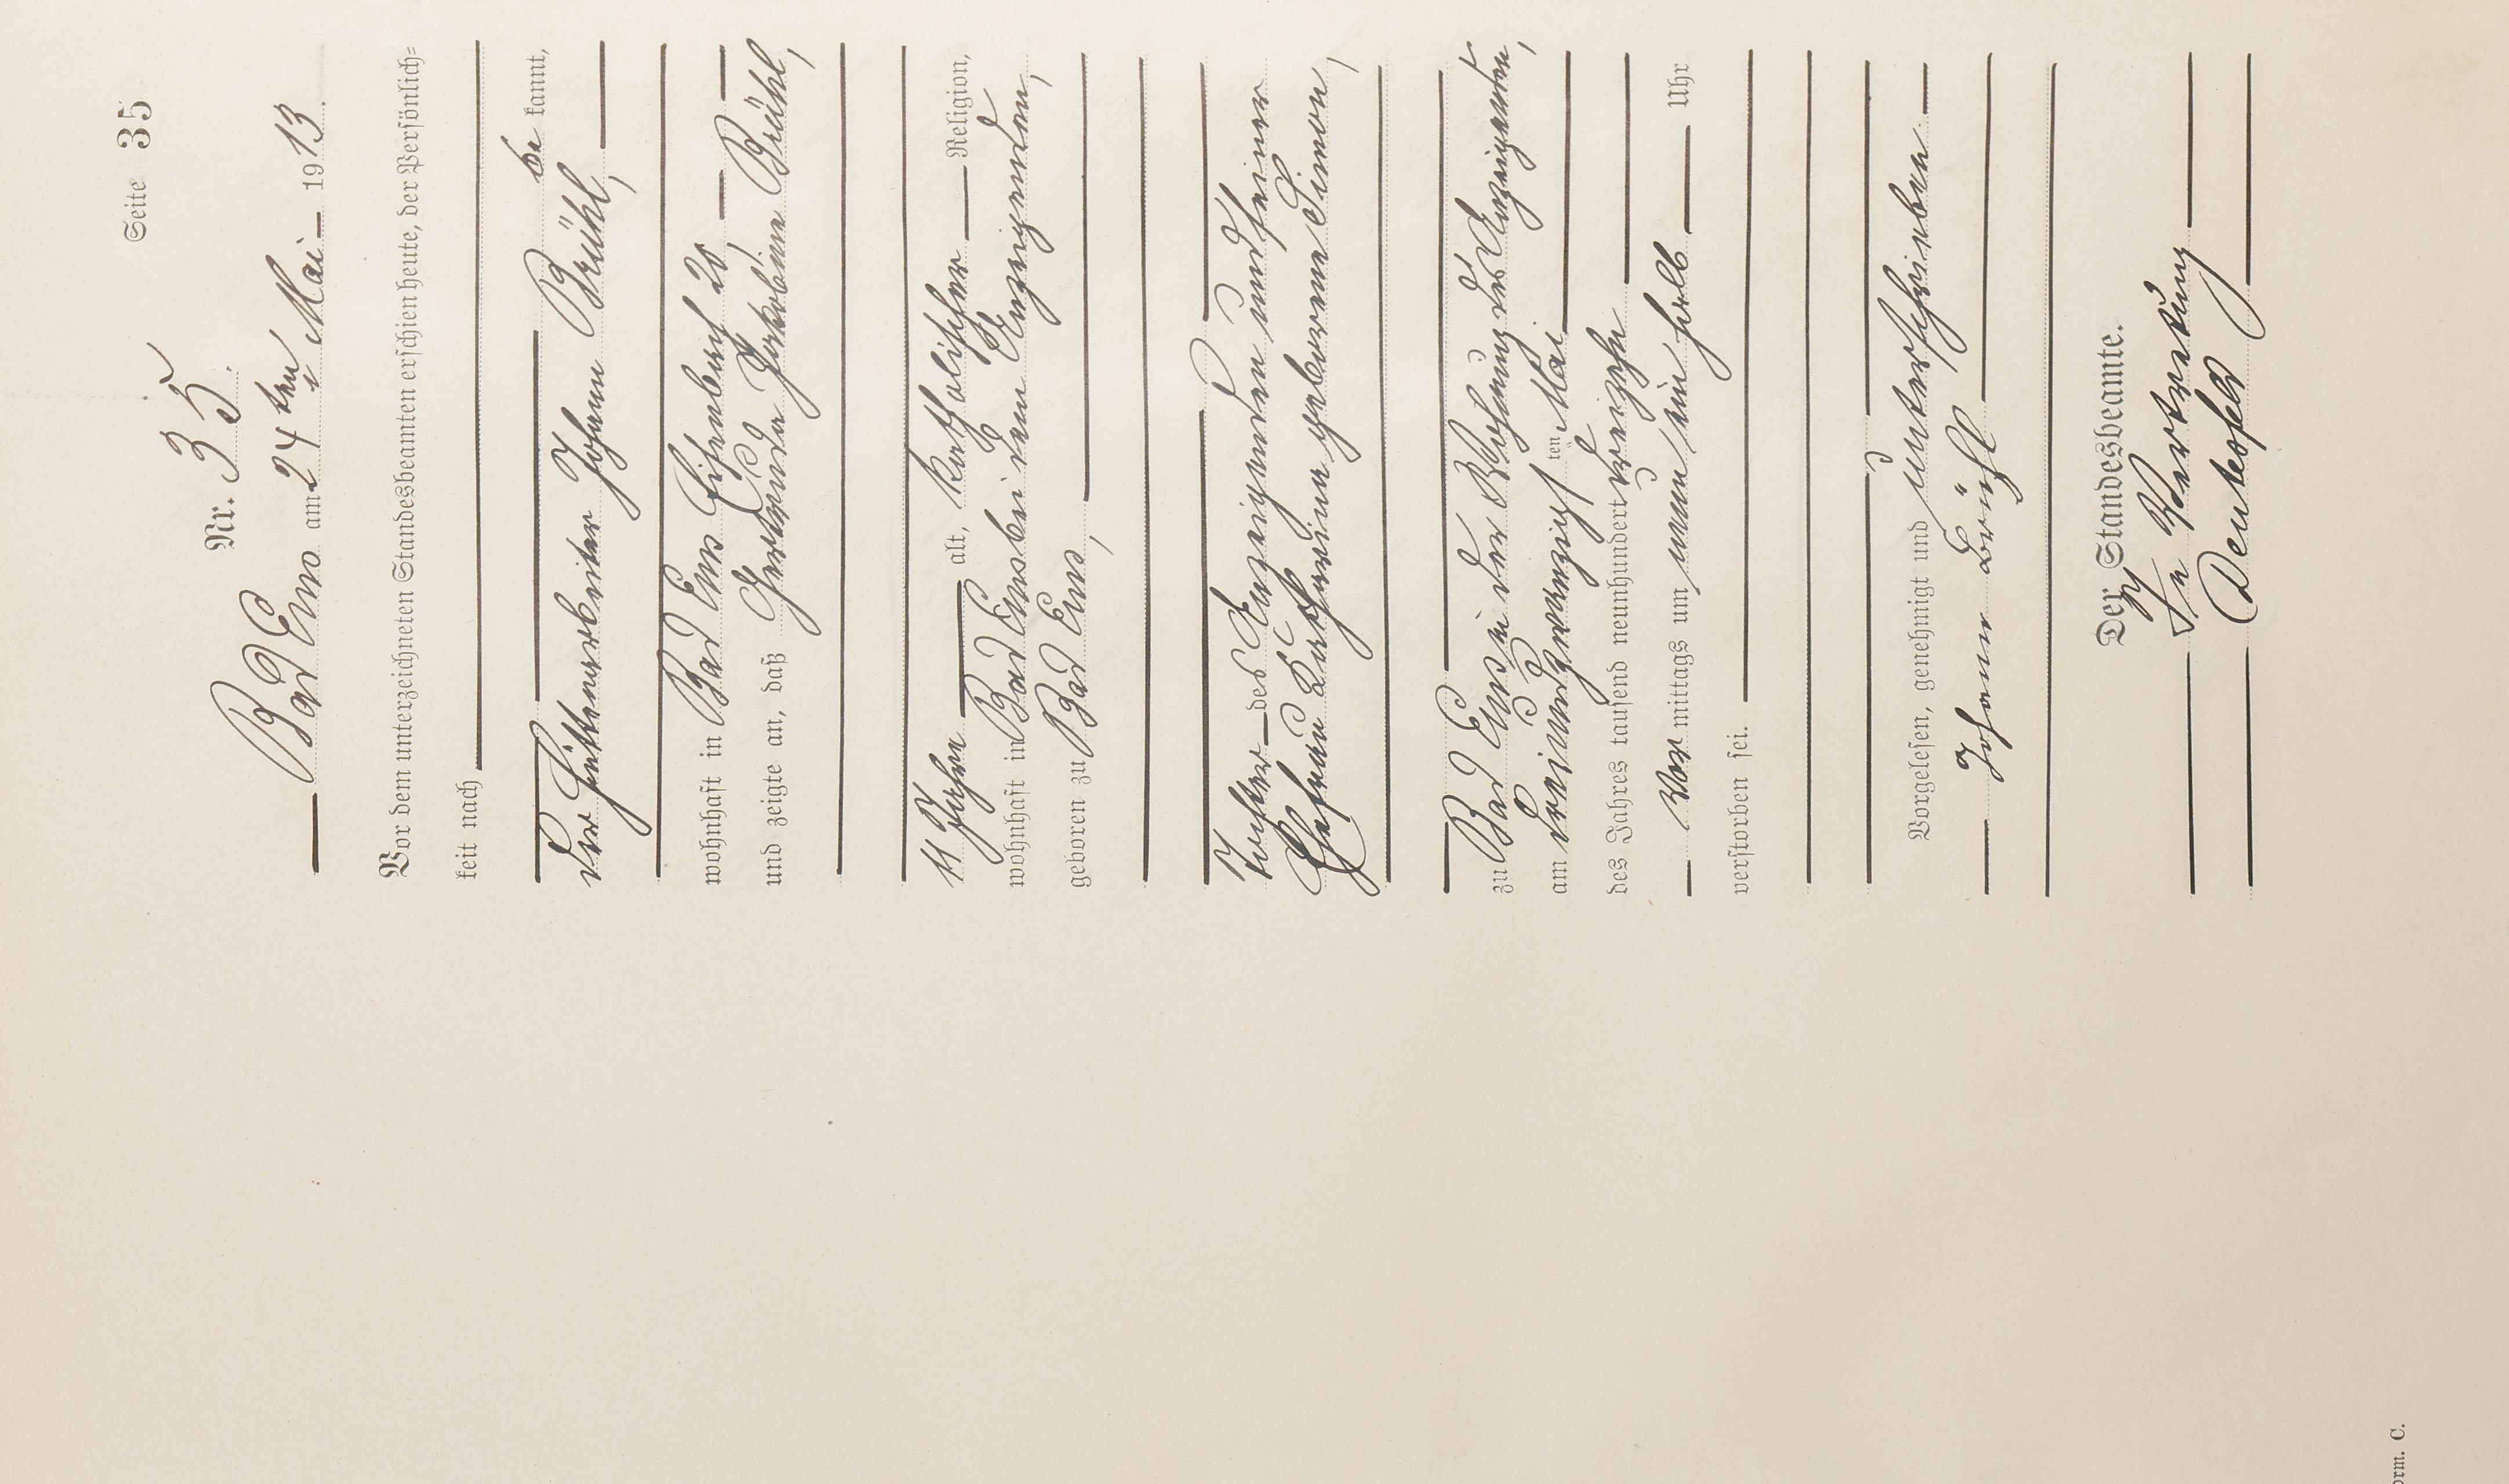 Seite 35
Nr. 35.
Bad Ems am 24 ten Mai 1913
Vor dem unterzeichneten Standesbeamten erschien heute, der Persönlich=
keit nach
be kannt,
der Hüttenarbeiter Johann Brühl,
wohnhaft in Bad Ems Eisenbach 20,
und zeigte an, daß Gertrude Jakobine Brühl,
11 Jahre alt, katholischer Religion,
wohnhaft in Bad Ems bei dem Anzeigenden,
geboren zu Bad Ems,
Tochter des Anzeigenden und seiner
Ehefrau Katharina geborene Simon,
zu Bad Ems in der Wohnung des Anzeigenden,
am dreiundzwanzigsten Mai
des Jahres tausend neunhundert dreizehn
Vor mittags um neun ein halb Uhr
verstorben sei.
Vorgelesen, genehmigt und unterschrieben
Johann Brühl
Der Standesbeamte.
In Vertretung
orm. C.